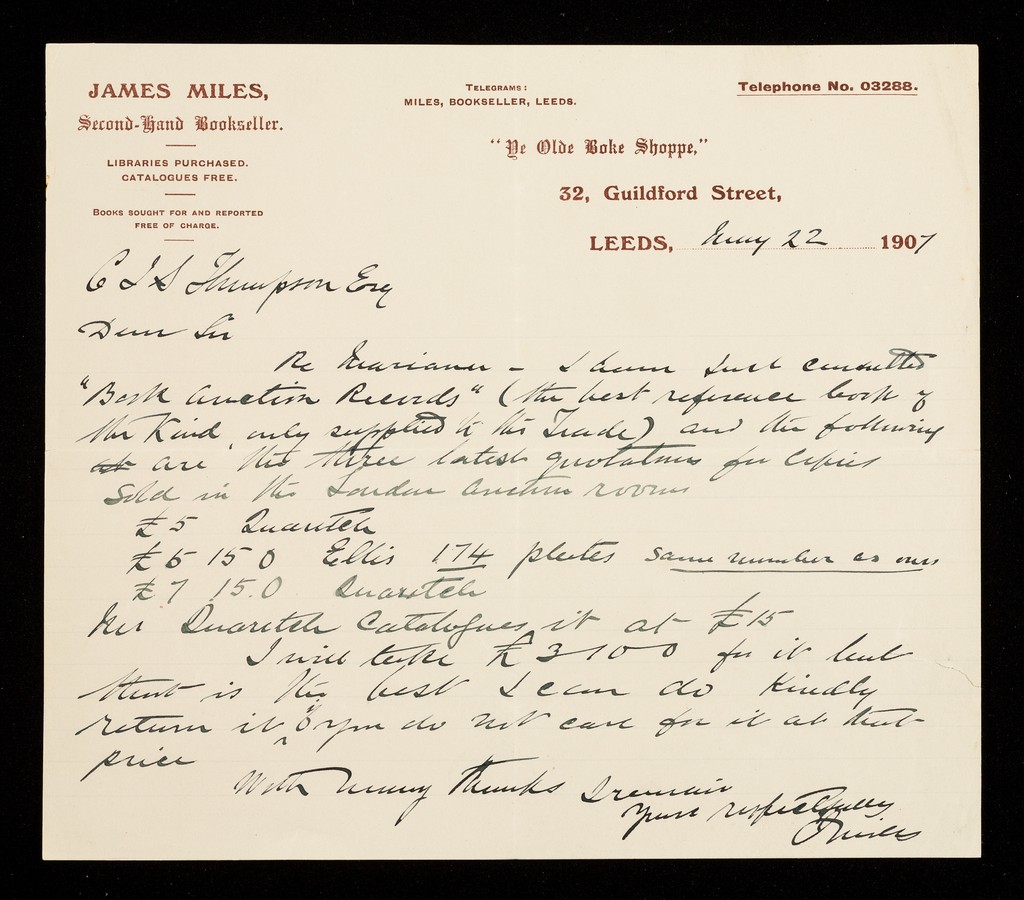 JAMES MILES,
Second-Hand Bookseller.
LIBRARIES PURCHASED.
CATALOGUES FREE.
BOOKS SOUGHT FOR AND REPORTED
FREE OF CHARGE.
TELEGRAMS:
MILES, BOOKSELLER, LEEDS.
Telephone No. 03288.
"Ye Olde Boke Shoppe,"
32, Guildford Street,
LEEDS, May 22 1907
C J S Thompson Esq
Dear Sir
Re - I have just consulted
"Book Auction Records" (the best reference book of
the Kind, only supplied to the Trade) and the following
are the three latest quotations for copies
Sold in the London Auction rooms
£5 Quaritch
£5 15 0 Ellis 174 plates same number as ours
£7 15.0 Quaritch
Mr Quaritch Catalogues it at £15
I will take £3-10 0 for it but
that is the best I can do Kindly
return it if you do not care for it at that
price
With many thanks I remain
Yours respectfully
J Miles